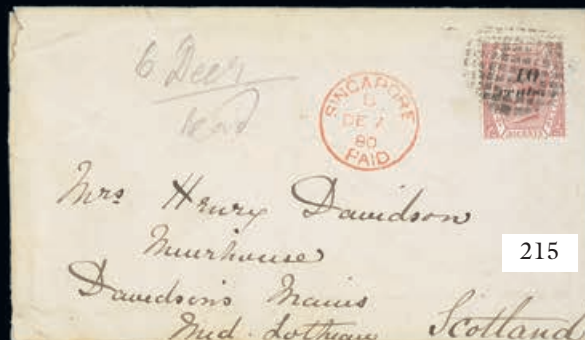 6 Decr
SINGAPORE
DE 7
80
PAID
10
Mrs Henry Davidson
Muirhouse
215
Davidson's Mains
Mid-Lothian Scotland